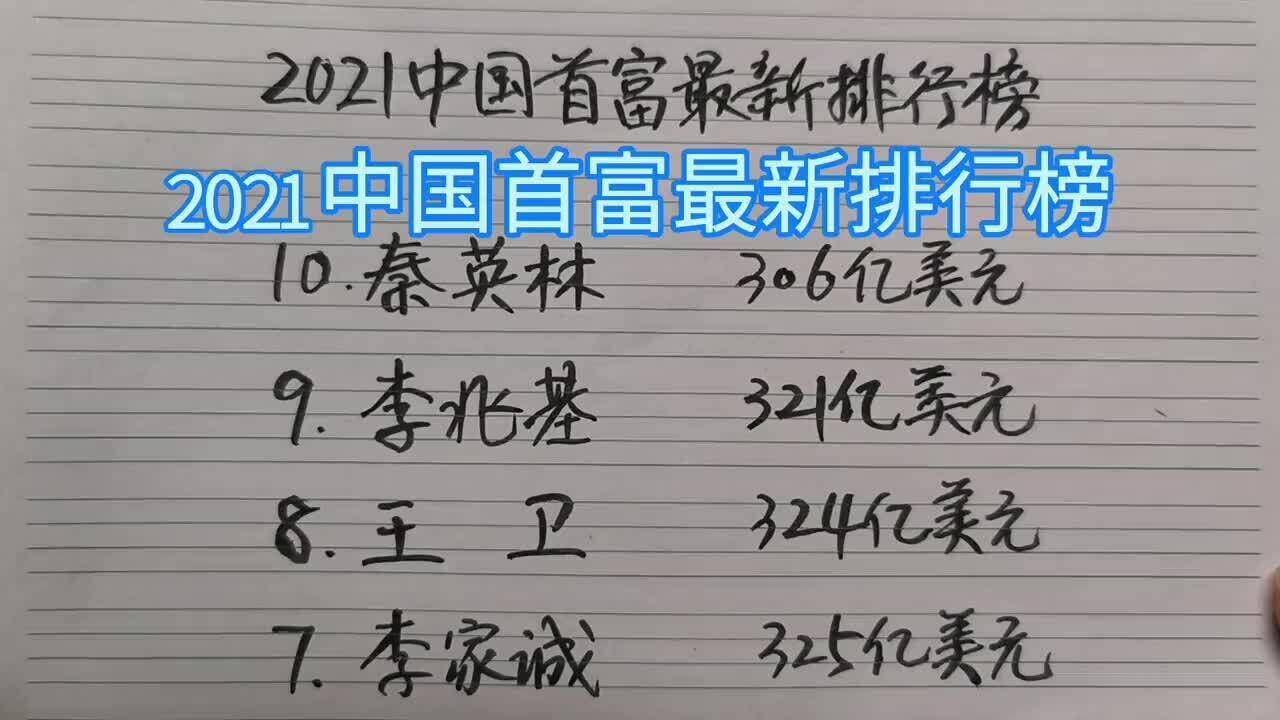 2021中国首富最新排行榜
2021中国首富最新排行榜
10.秦英林 306亿美元
9.李兆基 321亿美元
8.王卫 324亿美元
7.李家诚 325亿美元